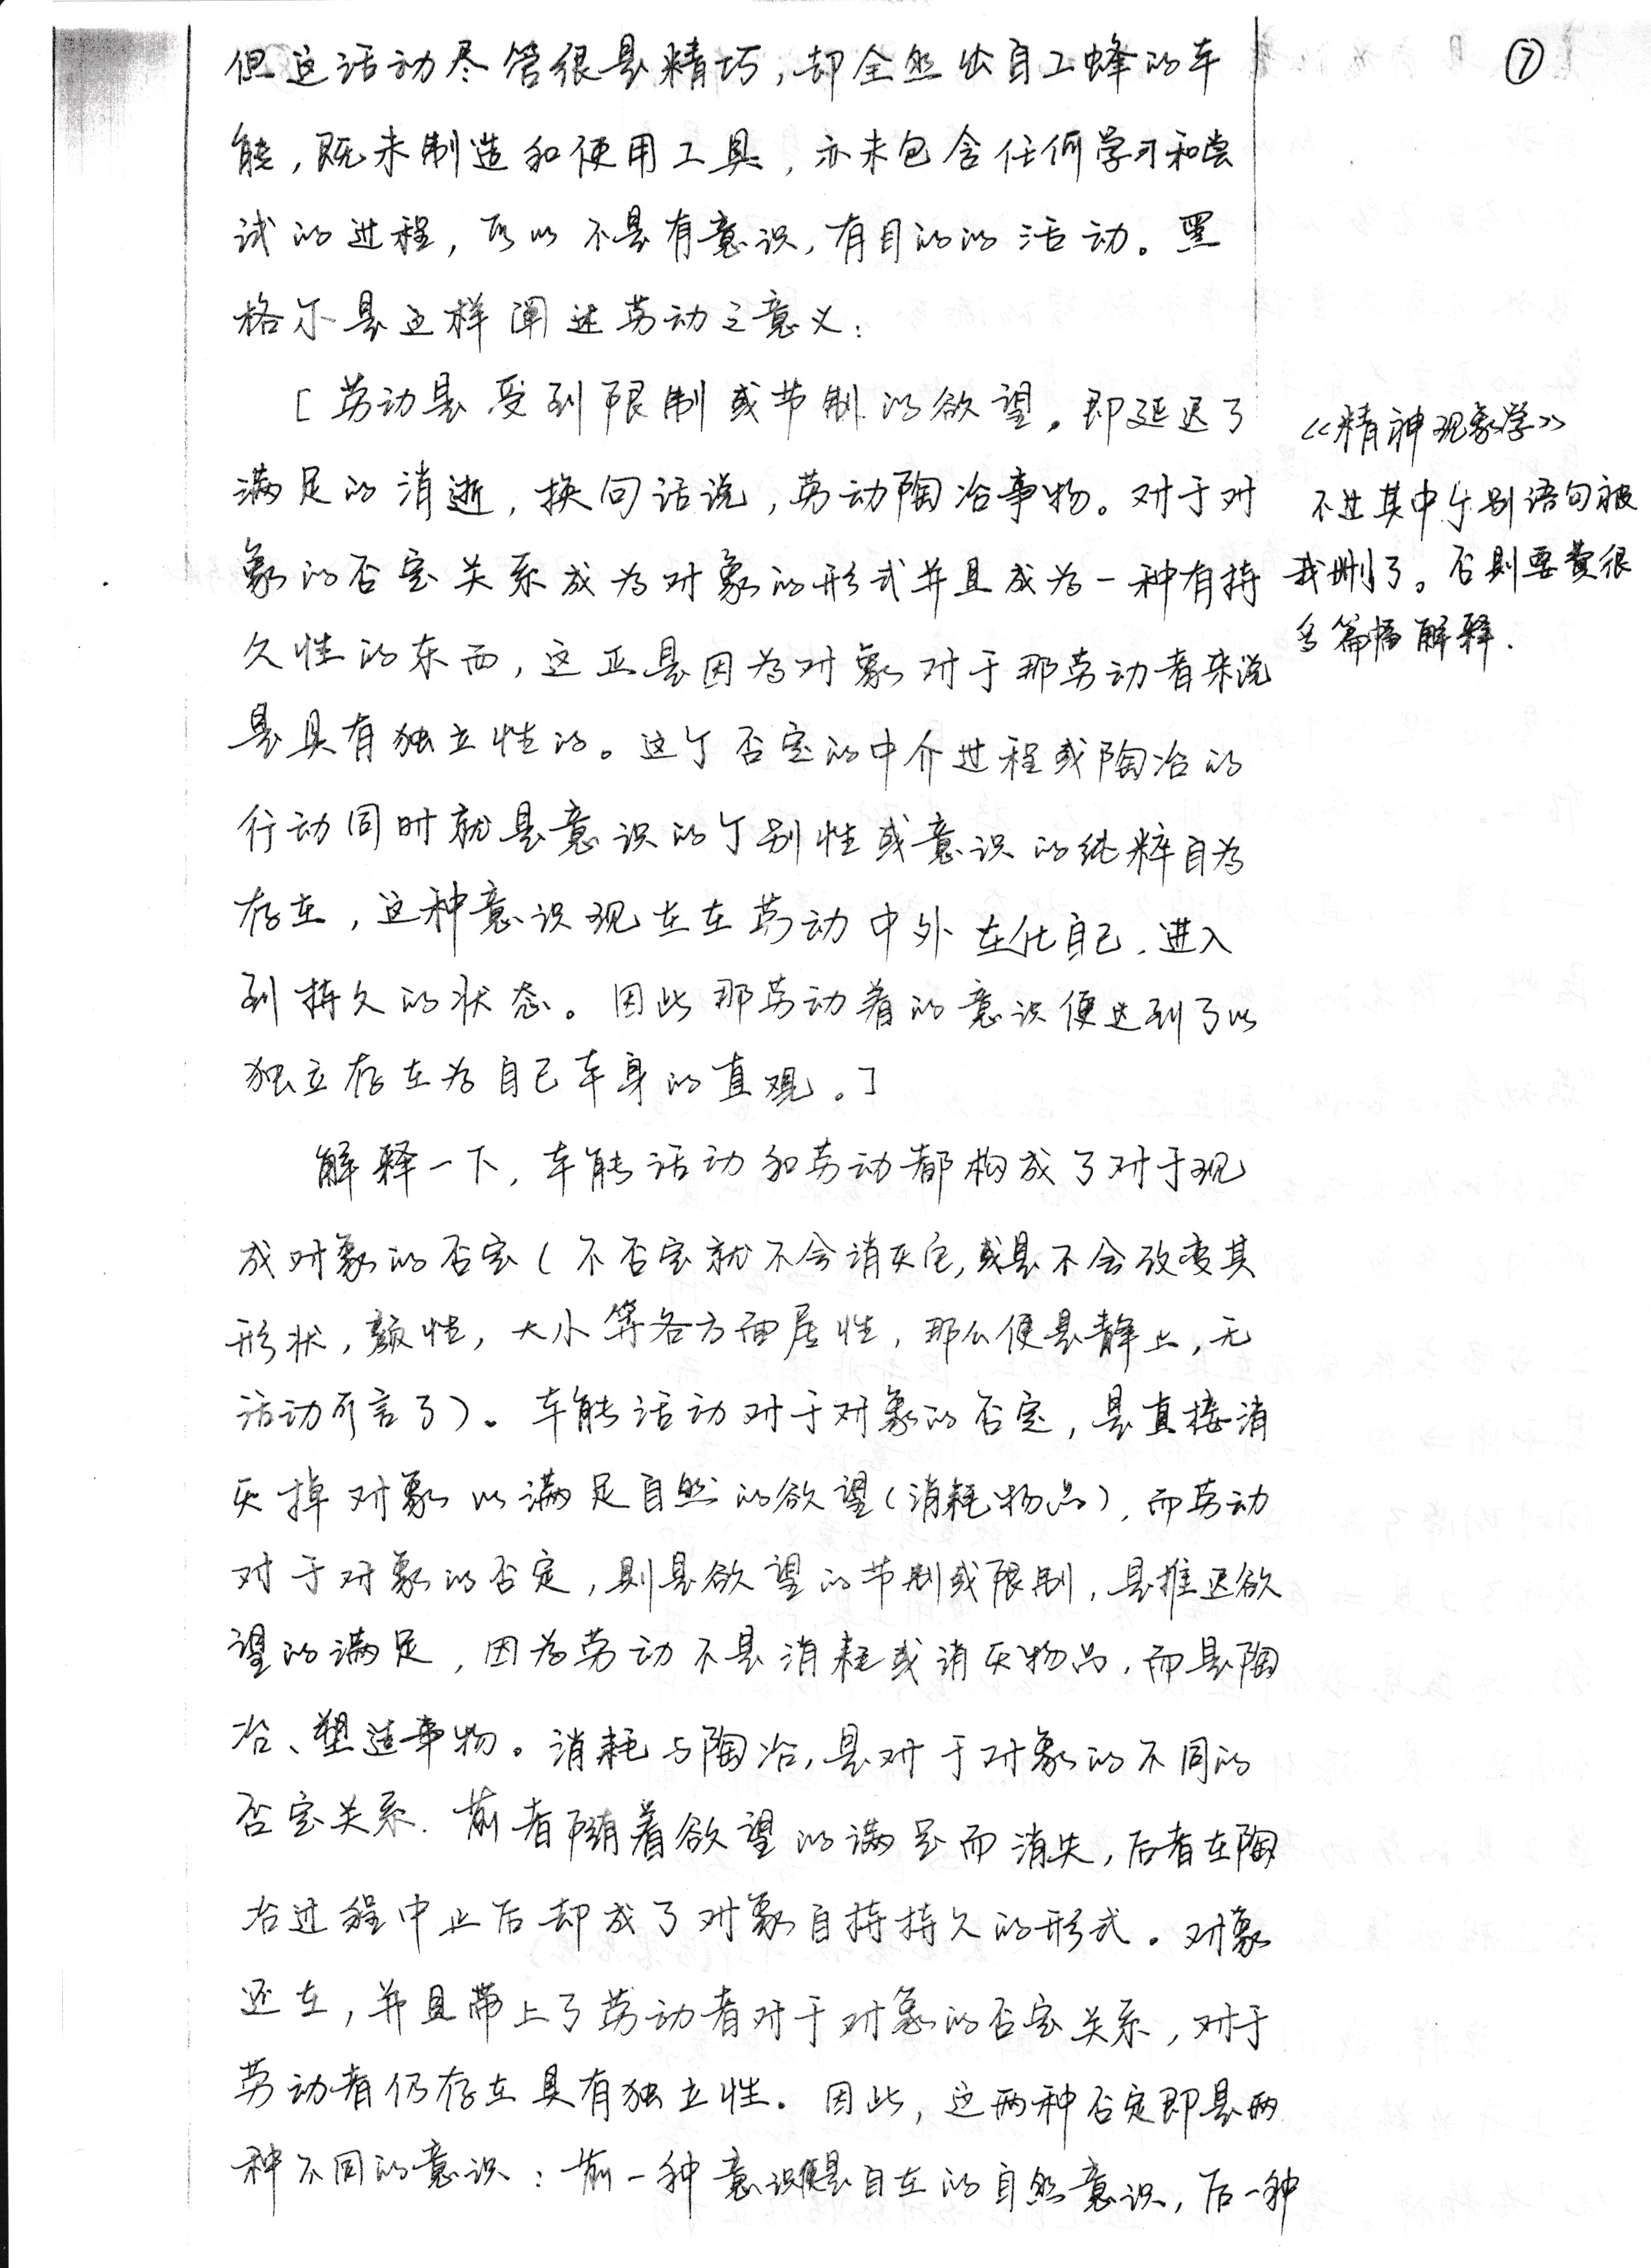 ⑦
但这活动尽管很是精巧,却全然出自工蜂的本
能,既未制造和使用工具,亦未包含任何学习和尝
试的过程,所以不是有意识,有目的的活动。黑
格尔是这样阐述劳动之意义:
[劳动是受到限制或节制的欲望,即延迟了
满足的消逝,换句话说,劳动陶冶事物。对于对
象的否定关系成为对象的形式并且成为一种有持
久性的东西,这正是因为对象对于那劳动者来说
是具有独立性的。这个否定的中介过程或陶冶的
行动同时就是意识的个别性或意识的纯粹自为
存在,这种意识现在在劳动中外在化自己,进入
到持久的状态。因此那劳动着的意识便达到了以
独立存在为自己本身的直观。]
《精神现象学》
不过其中个别语句被
我删了。否则要费很
多篇幅解释.
解释一下,本能活动和劳动都构成了对于现
成对象的否定(不否定就不会消灭它,或是不会改变其
形状,颜性,大小等各方面属性,那么便是静止,无
活动可言了)。本能活动对于对象的否定,是直接消
灭掉对象以满足自然的欲望(消耗物品),而劳动
对于对象的否定,则是欲望的节制或限制,是推迟欲
望的满足,因为劳动不是消耗或消灭物品,而是陶
冶、塑造事物。消耗与陶冶,是对于对象的不同的
否定关系.前者随着欲望的满足而消失,后者在陶
冶过程中止后却成了对象自持持久的形式。对象
还在,并且带上了劳动者对于对象的否定关系,对于
劳动者仍存在具有独立性。因此,这两种否定即是两
种不同的意识:前一种意识便是自在的自然意识,后一种